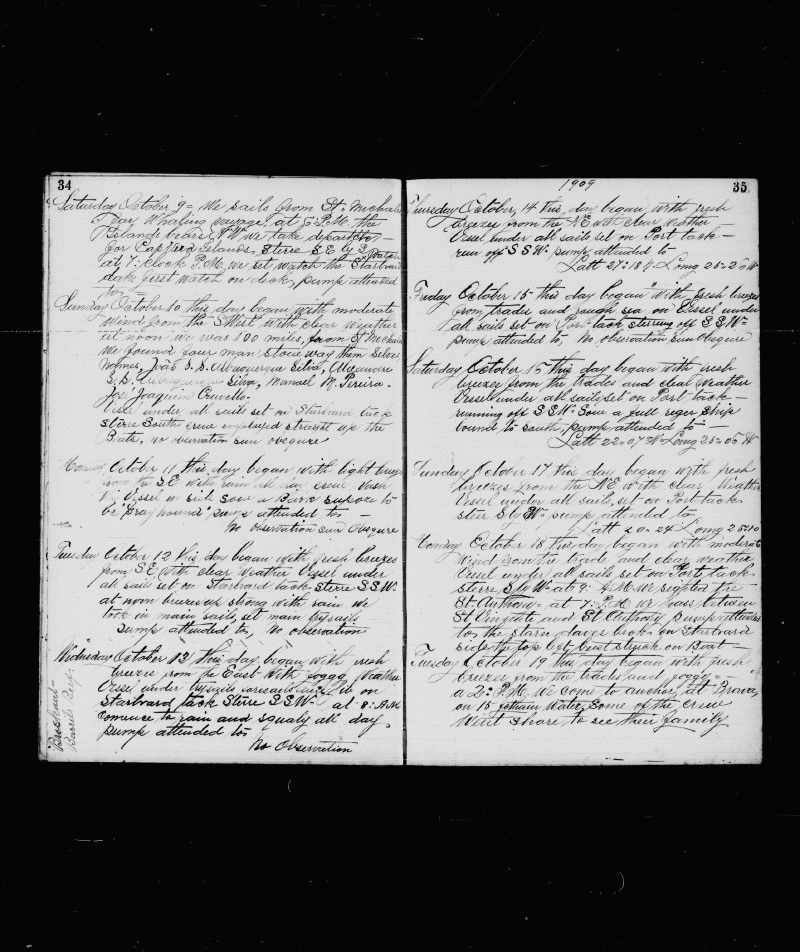 34
Saturday October 9 = We sails from St. Michaels
for Whaling voyage at 6 P.M. the
Islands bears N W we take departto
for Cap Verd Islands, Steree S E by S
at 7: clock P.M. we set watch the Starboard
dake first watch on deck, pump attended
to,
Sunday October 10 this day began with moderate
Wind from the SWest with clear weather
at noon we was 100 miles, from St Michaels
We found four man stow way them Selves
Names, João S. S. Albuquerque Silva, Alexandre
S. S. Albuquerque Silva, Manuel M. Pereira.
José Joaquim
Vessel under all sails set on Starboard tack
stere South crew employed straight up the
Boats, no observation sun obsqure
Monday October 11 this day began with light breeze
from the S.E. with rain all day crew wash
Vessel in Sail Saw a Bark supose to
be "Grayhound" pump attended to —
No observation sun Obsqure
Tuesday October 12 this day began with fresh breezes
from S.E. with clear weather Vessel under
all sails set on Starbord tack Sterre S.S.W.
at noon breeze up strong with rain we
took in main sails, set main trysail
pump attended to, No observation
Wednesday October 13 this day began with fresh
breezes from the East With foggy Weather
Vessel under trysails set on
Starbvard tack Sterre S.S.W. at 8: A.M
Comence to rain and squaly all day
pump attended to
No Observation
1909
35
Thursday October, 14 this day began with fresh
breezes from the N.E with clear weather
Vessel under all sails set on Port tack —
run off S S W. pump attended to —
Latt 27:18 N - Long 25=20 W
Friday October 15 this day began with fresh breezes
from trades and rough sea on Vessel under
all sails set on Port tack sterring off S S W.
pump attended to, No observation Sun Obsqure
Saturday October 16 this day began with fresh
breezes from the trades and clear Weather
Vessel under all sails, set on Port tack —
running off S S W. Saw a full reger Ship
bound to south, pump attended to —
Latt 22=07 N - Long 25=06 W
Sunday October 17 this day began with fresh
breezes from the N.E with clear Weather
Vessel under all sails, set on Port tack
steer S by W. pump attended to
Latt 20=24 Long 25=10
Monday October 18 this day began with moderate
wind from the trade and clear weather
Vessel under all sails set on Port tack.
sterre S by W. at 9: A.M. We sighted fre
St. Anthony at 7: P.M we pass between
St Vincente and St Anthony pump attended
to, the starn daver broke on Starbvard
side the top left bent stuck on Boat —
Tuesday October 19 this day began with fresh
breezes from the trades and foggy —
a 2: P.M. We come to anchor, at Brava,
on 15 fathum Water, Some of the Crew
Want shore to see their family